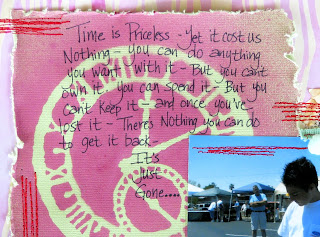 Time is Priceless - Yet it cost us
Nothing - You can do anything
you want with it - But you can't
own it. You can spend it - But you
can't keep it - and once you've
lost it - There's Nothing you can do
to get it back -
It's
Just
Gone....